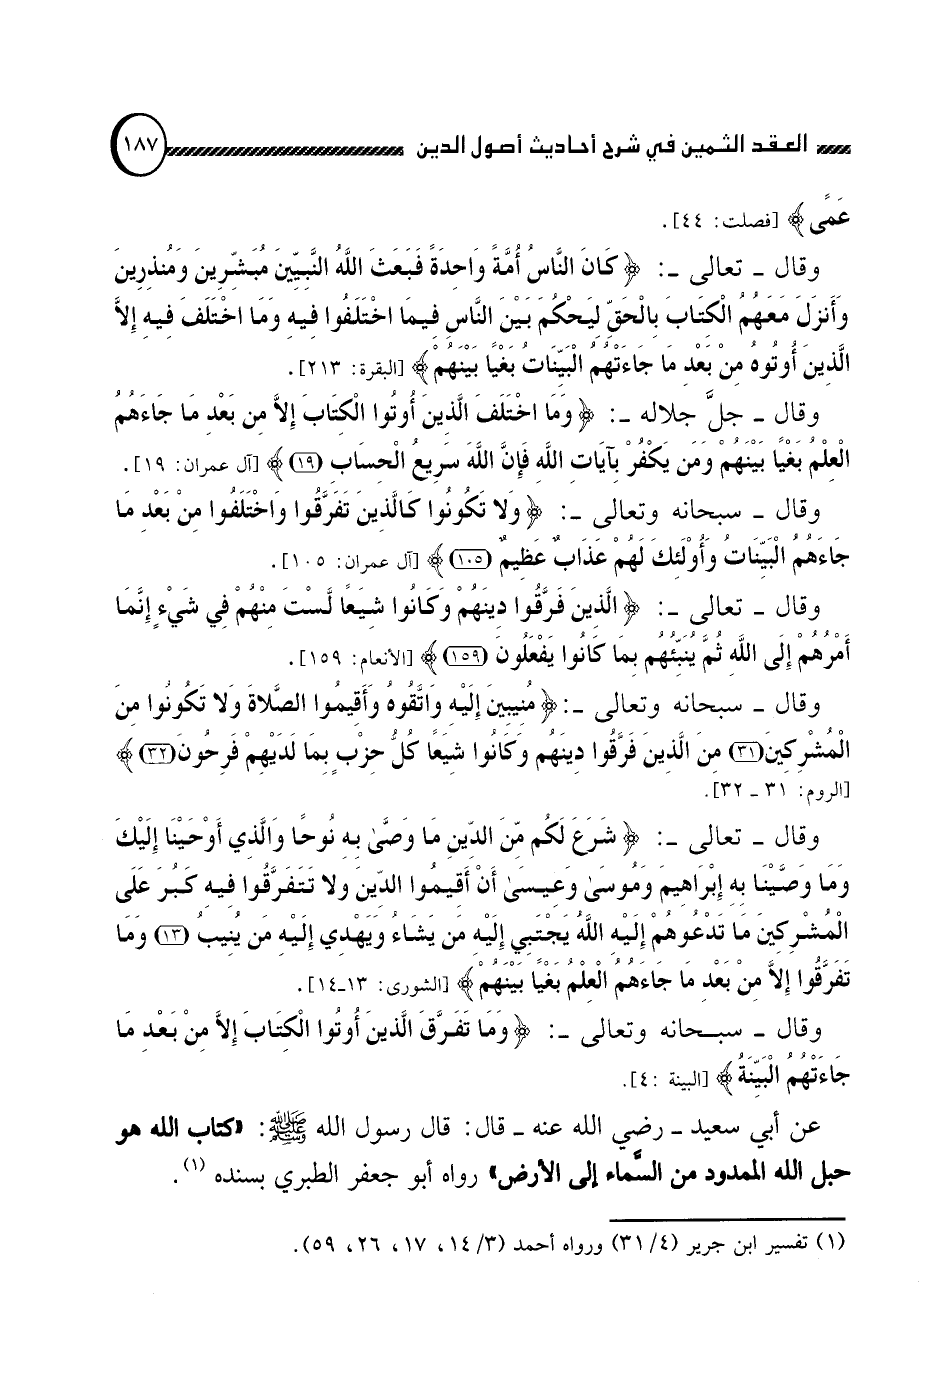 العقد الثمين في شرح أحاديث أصول الدين ١٨٧
عَمًى ﴾ [فصلت: ٤٤].
وقال ـ تعالى ـ: ﴿ كَانَ النَّاسُ أُمَّةً وَاحِدَةً فَبَعَثَ اللَّهُ النَّبِيِّينَ مُبَشِّرِينَ وَمُنذِرِينَ
وَأَنزَلَ مَعَهُمُ الْكِتَابَ بِالْحَقِّ لِيَحْكُمَ بَيْنَ النَّاسِ فِيمَا اخْتَلَفُوا فِيهِ وَمَا اخْتَلَفَ فِيهِ إِلاَّ
الَّذِينَ أُوتُوهُ مِنْ بَعْدِ مَا جَاءَتْهُمُ الْبَيِّنَاتُ بَغْيًا بَيْنَهُمْ ﴾ [البقرة: ٢١٣].
وقال ـ جلَّ جلاله ـ: ﴿ وَمَا اخْتَلَفَ الَّذِينَ أُوتُوا الْكِتَابَ إِلاَّ مِن بَعْدِ مَا جَاءَهُمُ
الْعِلْمُ بَغْيًا بَيْنَهُمْ وَمَن يَكْفُرْ بِآيَاتِ اللَّهِ فَإِنَّ اللَّهَ سَرِيعُ الْحِسَابِ (١٩) ﴾ [آل عمران: ١٩].
وقال ـ سبحانه وتعالى ـ: ﴿ وَلا تَكُونُوا كَالَّذِينَ تَفَرَّقُوا وَاخْتَلَفُوا مِنْ بَعْدِ مَا
جَاءَهُمُ الْبَيِّنَاتُ وَأُوْلَئِكَ لَهُمْ عَذَابٌ عَظِيمٌ (١٠٥) ﴾ [آل عمران: ١٠٥].
وقال ـ تعالى ـ: ﴿ الَّذِينَ فَرَّقُوا دِينَهُمْ وَكَانُوا شِيَعًا لَّسْتَ مِنْهُمْ فِي شَيْءٍ إِنَّمَا
أَمْرُهُمْ إِلَى اللَّهِ ثُمَّ يُنَبِّئُهُم بِمَا كَانُوا يَفْعَلُونَ (١٥٩) ﴾ [الأنعام: ١٥٩].
وقال ـ سبحانه وتعالى ـ: ﴿ مُنِيبِينَ إِلَيْهِ وَاتَّقُوهُ وَأَقِيمُوا الصَّلاةَ وَلا تَكُونُوا مِنَ
الْمُشْرِكِينَ (٣١) مِنَ الَّذِينَ فَرَّقُوا دِينَهُم وَكَانُوا شِيَعًا كُلُّ حِزْبٍ بِمَا لَدَيْهِمْ فَرِحُونَ (٣٢) ﴾
[الروم: ٣١ ـ ٣٢].
وقال ـ تعالى ـ: ﴿ شَرَعَ لَكُم مِّنَ الدِّينِ مَا وَصَّىٰ بِهِ نُوحًا وَالَّذِي أَوْحَيْنَا إِلَيْكَ
وَمَا وَصَّيْنَا بِهِ إِبْرَاهِيمَ وَمُوسَىٰ وَعِيسَىٰ أَنْ أَقِيمُوا الدِّينَ وَلا تَتَفَرَّقُوا فِيهِ كَبُرَ عَلَى
الْمُشْرِكِينَ مَا تَدْعُوهُمْ إِلَيْهِ اللَّهُ يَجْتَبِي إِلَيْهِ مَن يَشَاءُ وَيَهْدِي إِلَيْهِ مَن يُنِيبُ (١٣) وَمَا
تَفَرَّقُوا إِلاَّ مِنْ بَعْدِ مَا جَاءَهُمُ الْعِلْمُ بَغْيًا بَيْنَهُمْ ﴾ [الشورى: ١٣ـ١٤].
وقال ـ سبحانه وتعالى ـ: ﴿ وَمَا تَفَرَّقَ الَّذِينَ أُوتُوا الْكِتَابَ إِلاَّ مِنْ بَعْدِ مَا
جَاءَتْهُمُ الْبَيِّنَةُ ﴾ [البينة :٤].
عن أبي سعيد ـ رضي الله عنه ـ قال: قال رسول الله ﷺ: «كتاب الله هو
حبل الله الممدود من السَّماء إلى الأرض» رواه أبو جعفر الطبري بسنده (١).
(١) تفسير ابن جرير (٣١/٤) ورواه أحمد (١٤/٣، ١٧، ٢٦، ٥٩).